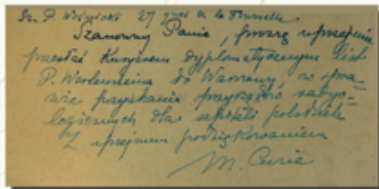 Sz. P. 27 quai de la Tournelle
Szanowny Panie, proszę uprzejmie
przesłać Kurjerem dyplomatycznym list
P. Wertensteina do Warszawy, w spra-
wie pozyskania przyrządów radyo-
logicznych dla szkółki polskich
Z uprzejmem podziękowaniem
M. Curie